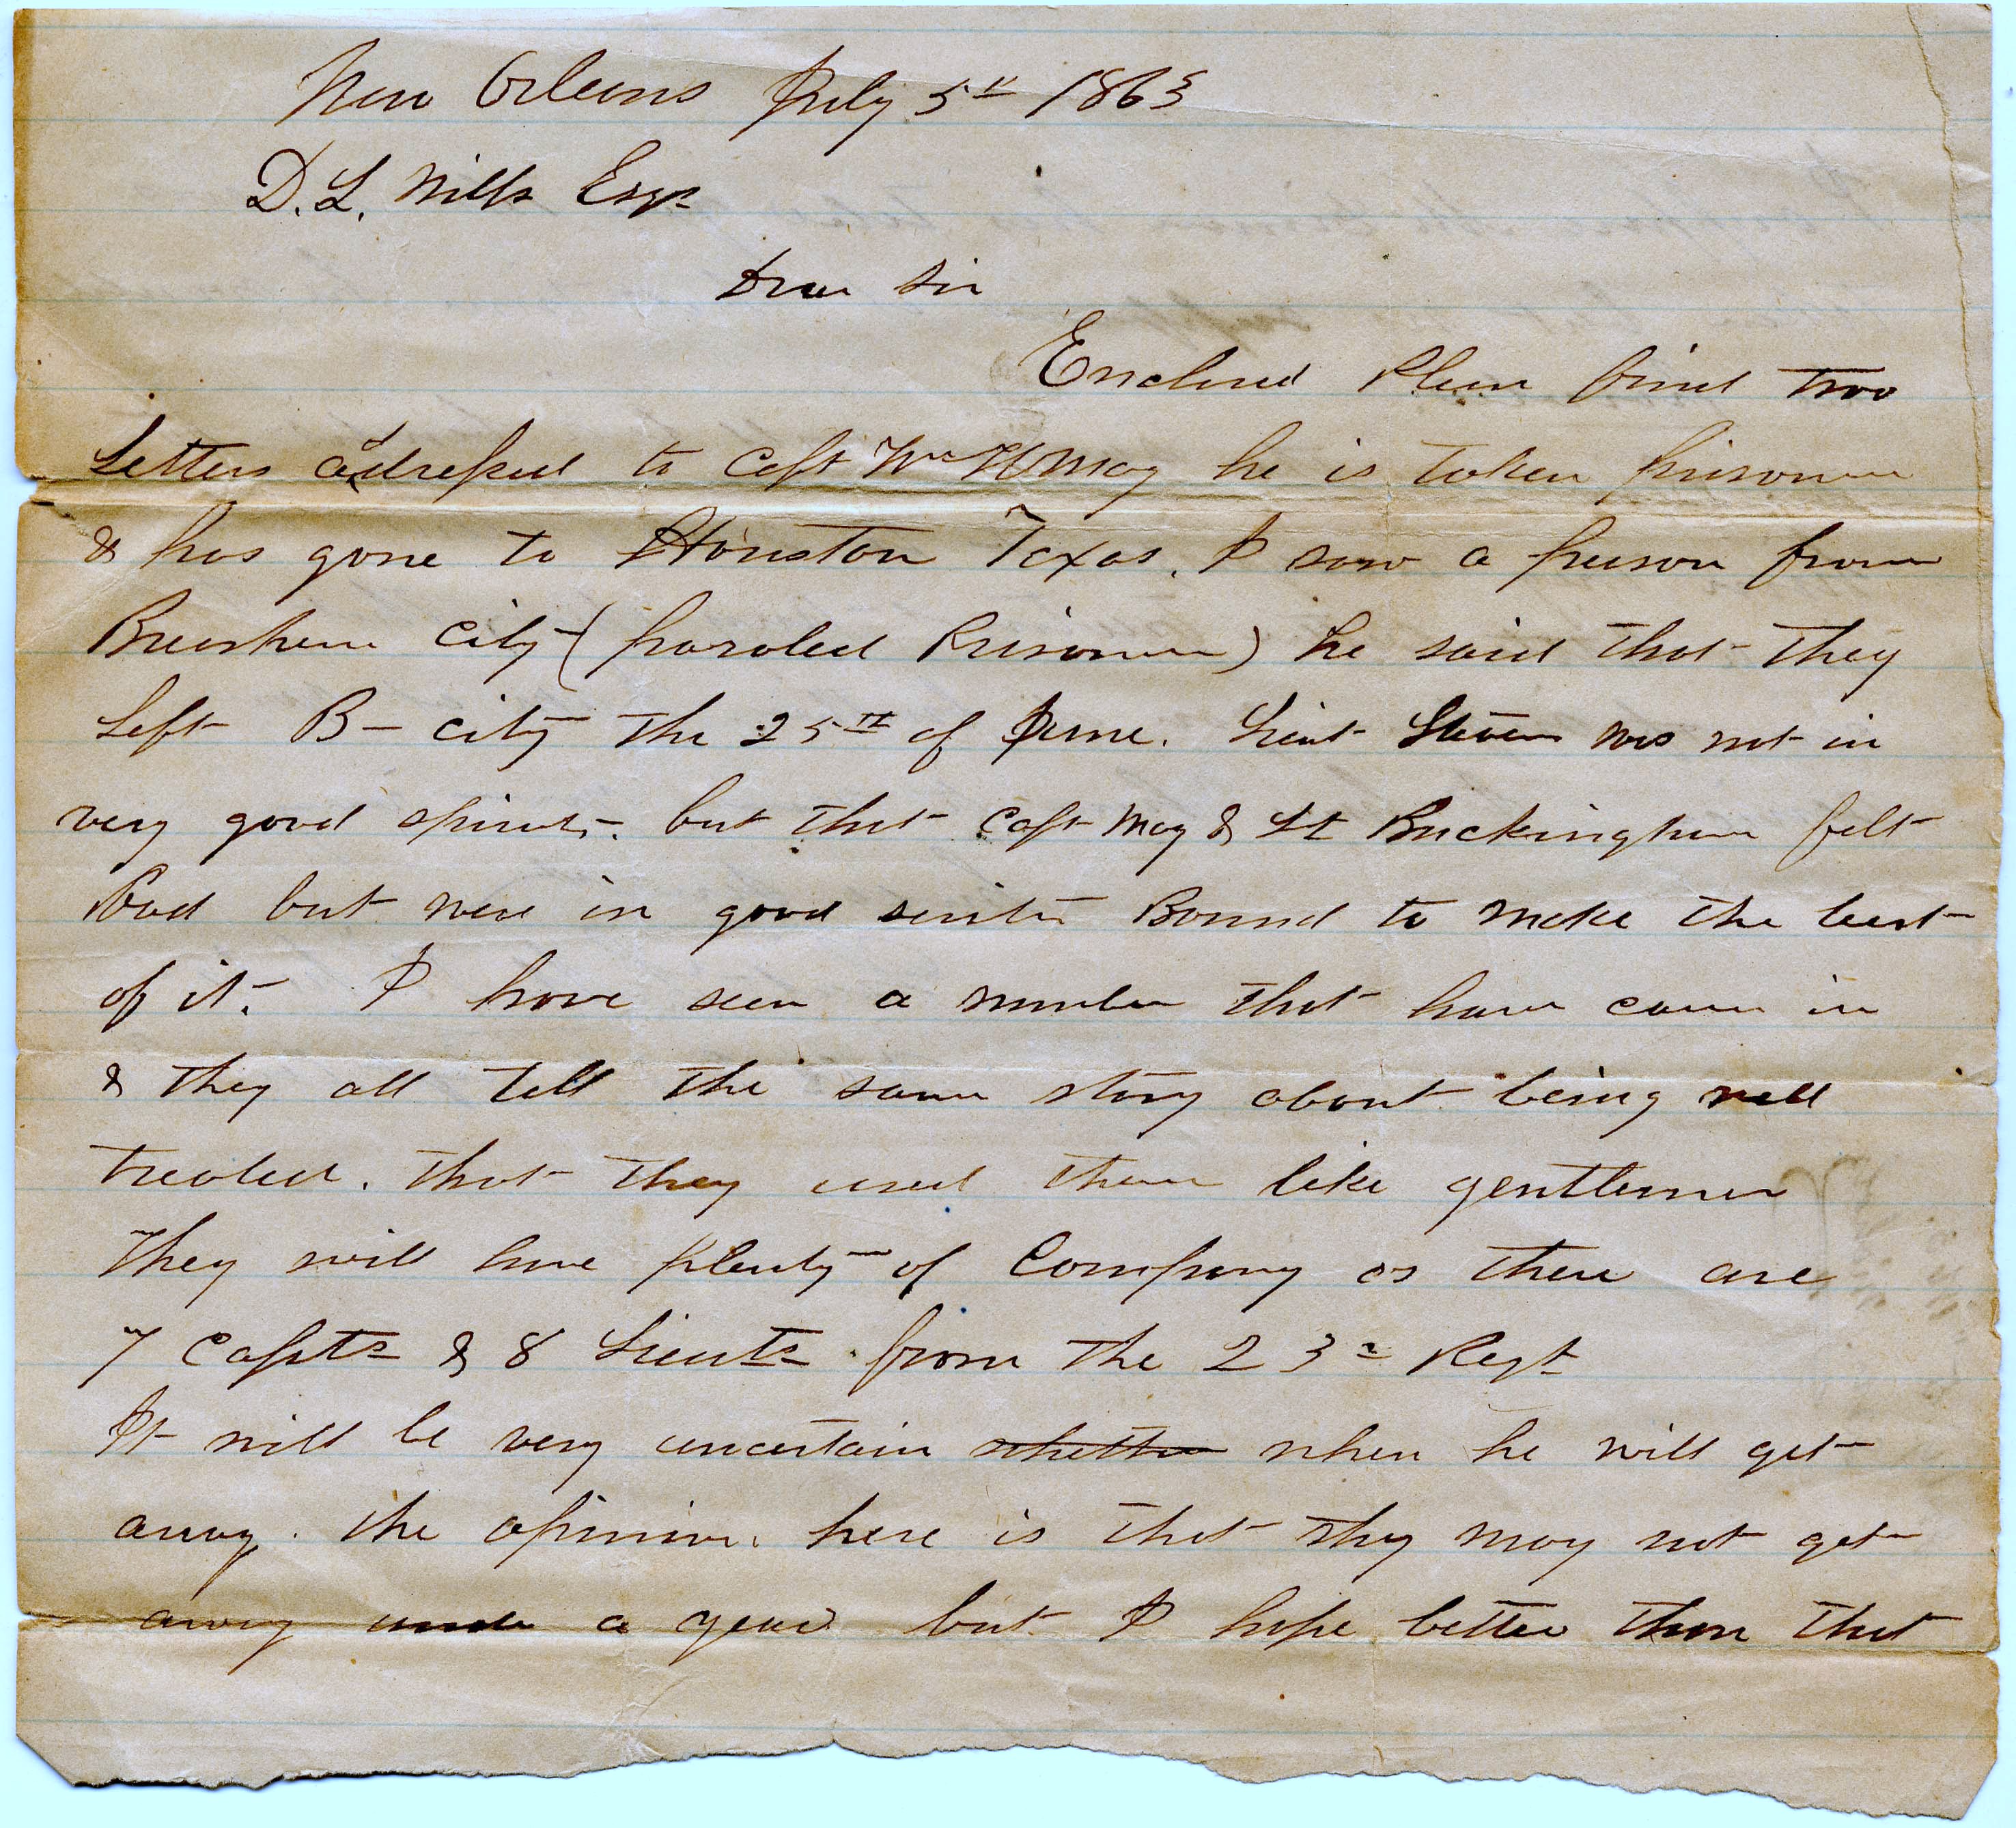 New Orleans July 5th 1863
D. L. Mills Esqr
Dear Sir
Enclosed Please find two
Letters addressed to Capt Wm H May he is taken prisoner
& has gone to Houston Texas. I saw a person from
Brashear City (paroled Prisoner) he said that they
left B- City the 25th of June. Lieut Stevens was not in
very good spirits. but that Capt May & Lt Buckingham felt
Bad but were in good Bound to make the best
of it. I have seen a number that have came in
& they all tell the same story about being well
treated. that they used them like gentlemen
They will have plenty of Company as there are
7 Capts & 8 Lieuts from the 23d Regt
It will be very uncertain whether when he will get
away. the opinion here is that they may not get
away under a year but I hope better than that